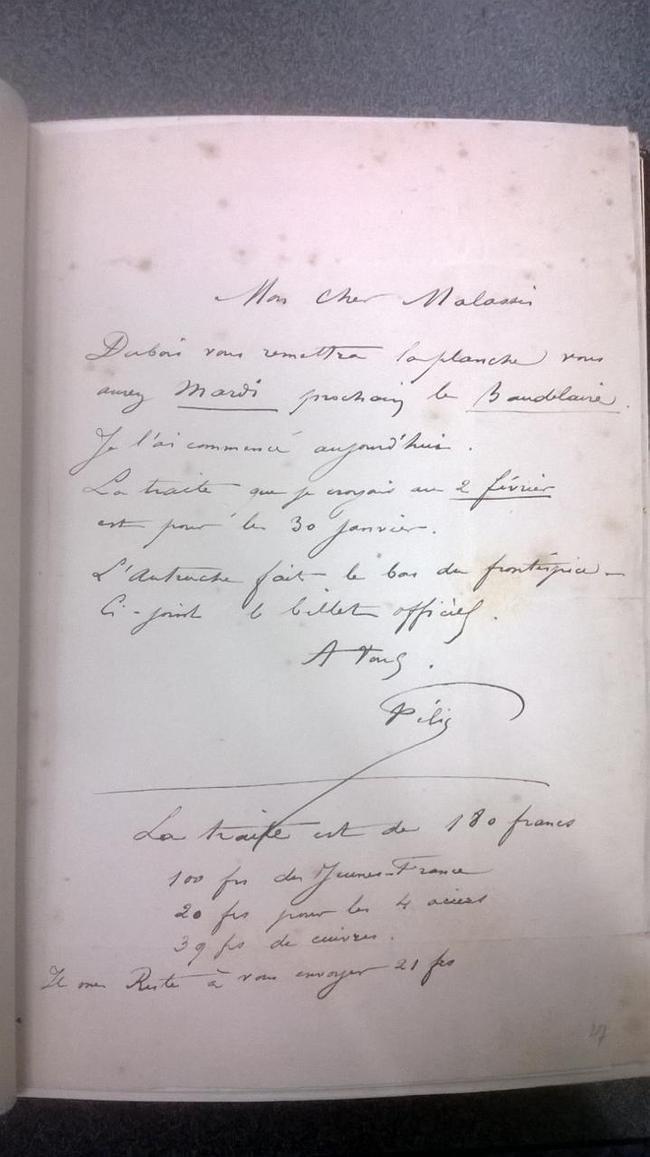 Mon cher Malassis
Dubois vous remettra la planche vous
aurez Mardi prochain le Baudelaire.
Je l'ai commencé aujourd'hui.
La traite que je croyais au 2 février
est pour le 30 janvier.
L'Autruche fait le bas du frontispice _
Ci-joint le billet officiel.
A vous.
Félix
La traite est de 180 francs
100 frs des Jeunes-France
20 frs pour les 4 aciers
39 frs de cuivres.
Il me Reste à vous envoyer 21 frs